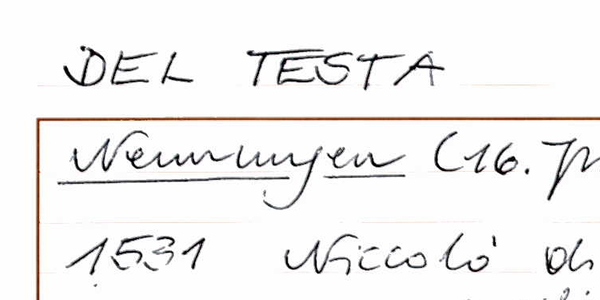 DEL TESTA
Nennungen (16. Jh
1531 Niccolò di